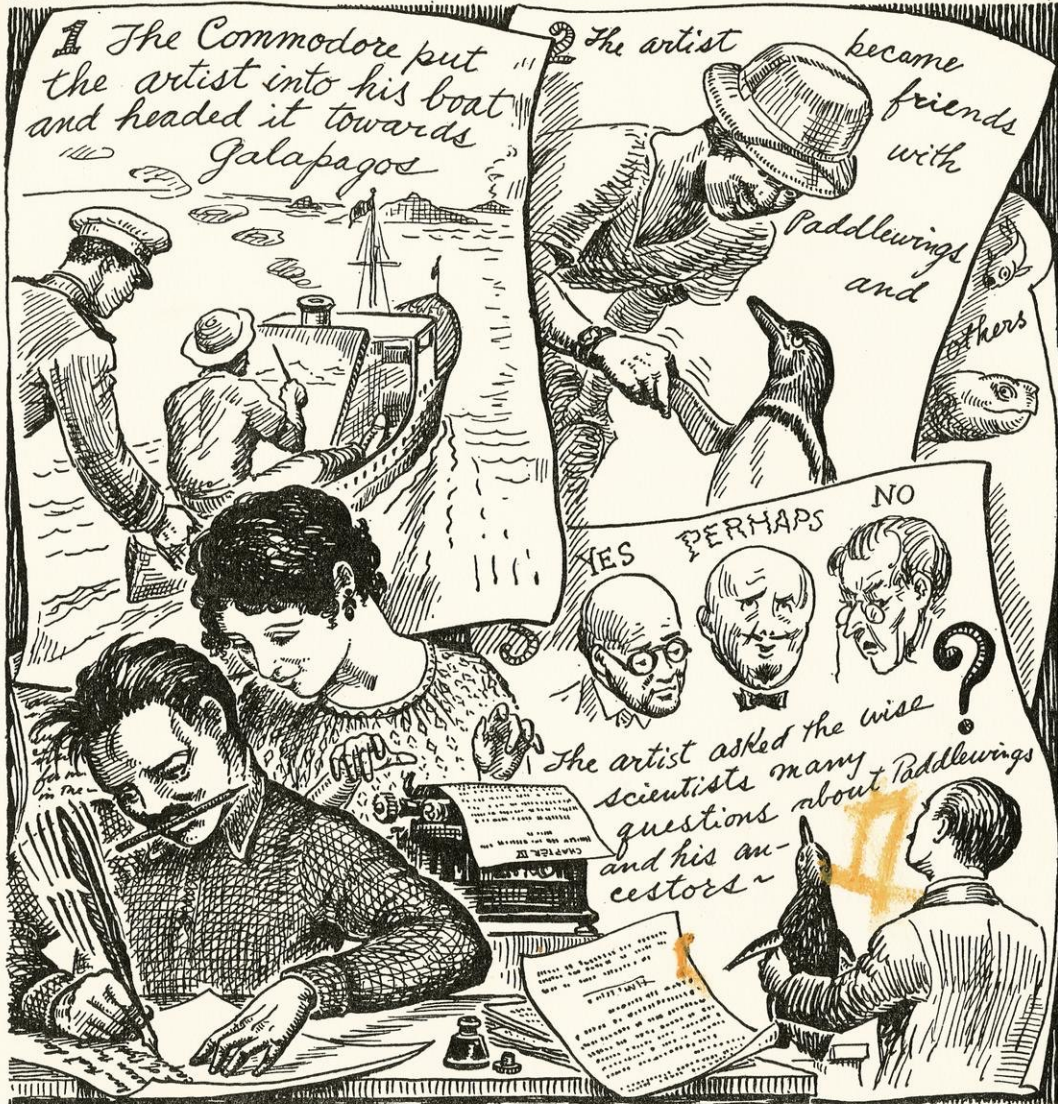 1 The Commodore put
the artist into his boat
and headed it towards
Galapagos
2 The artist became
friends
with
Paddlewings
and
others
YES PERHAPS NO
3
?
The artist asked the wise
scientists many
questions about Paddlewings
and his an-
cestors~
CHAPTER IV